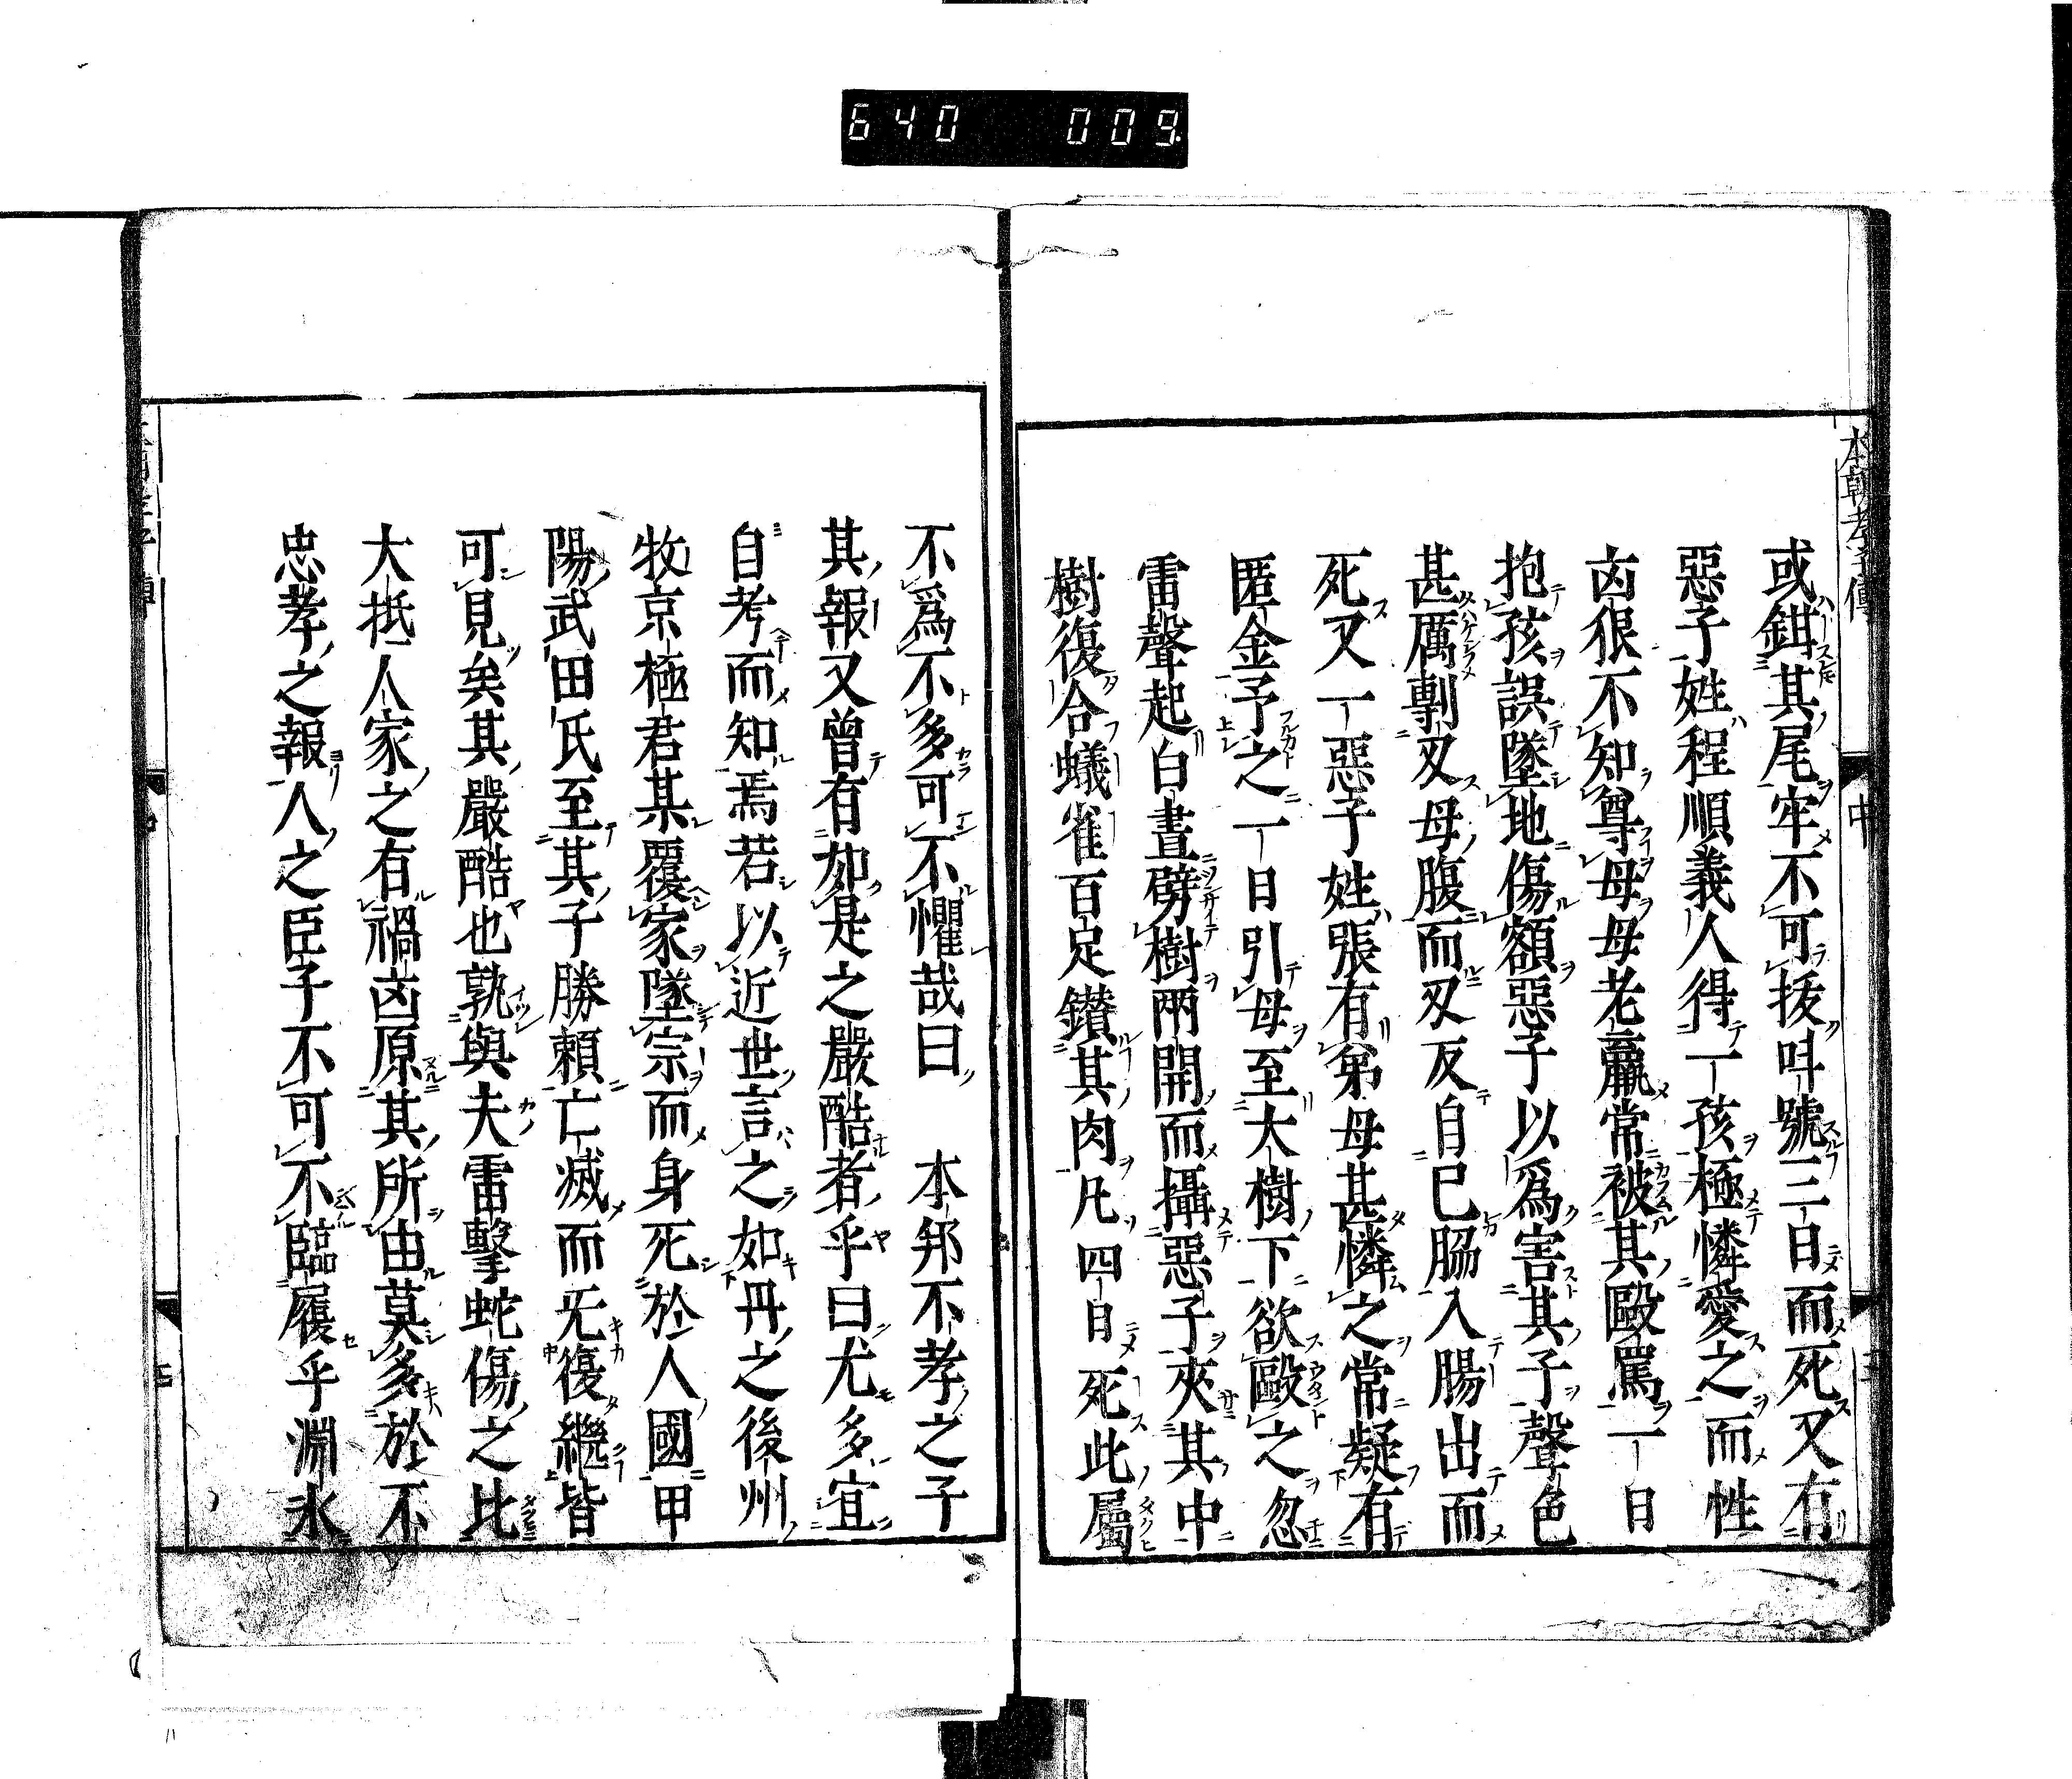 640 009
本朝孝子傳
中
或鉗其尾牢不可拔呌號三日而死又有
惡子姓程順義人得一孩極憐愛之而性
凶狠不知尊母母老羸常被其毆罵一日
抱孩誤墜地傷額惡子以爲害其子聲色
甚厲剸刃母腹而刃反自己脇入腸出而
死又一惡子姓張有弟母甚憐之常疑有
匿金予之一日引母至大樹下欲毆之忽
雷聲起白晝劈樹兩開而攝惡子夾其中
樹復合蟻雀百足鑚其肉凡四日死此屬
不爲不多可不懼哉曰 本邦不孝之子
其報又曾有如是之嚴酷者乎曰尤多宜
自考而知焉若以近世言之如丹之後州
牧京極君某覆家墜宗而身死於人國甲
陽武田氏至其子勝頼亡滅而无復繼皆
可見矣其嚴酷也孰與夫雷擊蛇傷之比
大抵人家之有禍凶原其所由莫多於不
忠孝之報人之臣子不可不臨履乎淵氷